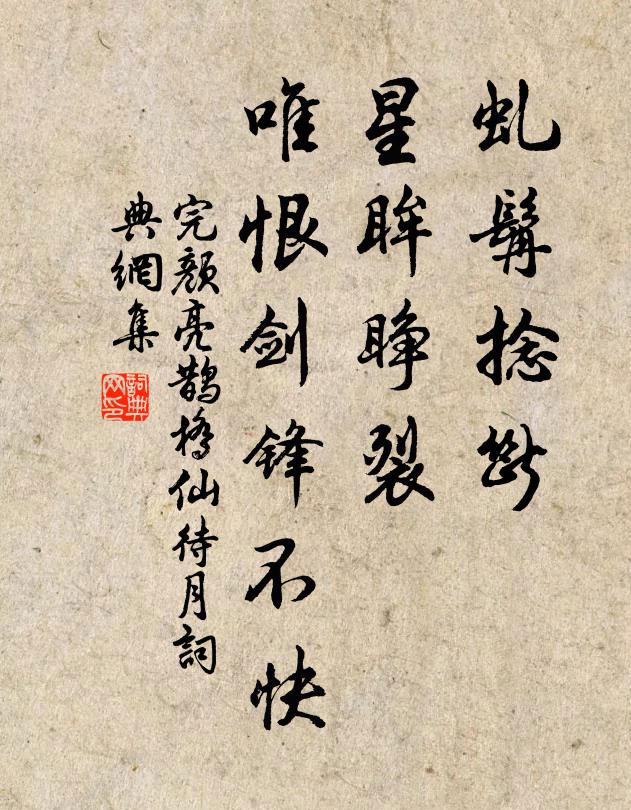 虬髯捻断
星眸睁裂
唯恨剑锋不快
完颜亮鹊桥仙待月詞
典網集
詞典网印